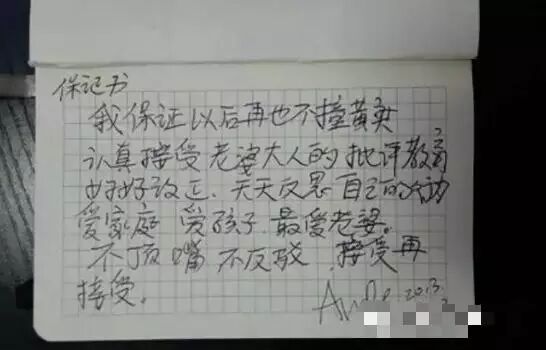 保记书
我保证以后再也不撞黄灾
认真接受老婆大人的批评教育
好好改正.天天反思自己的
爱家庭 爱孩子.最爱老婆。
不顶嘴 不反驳.接受再
接受。
2013.